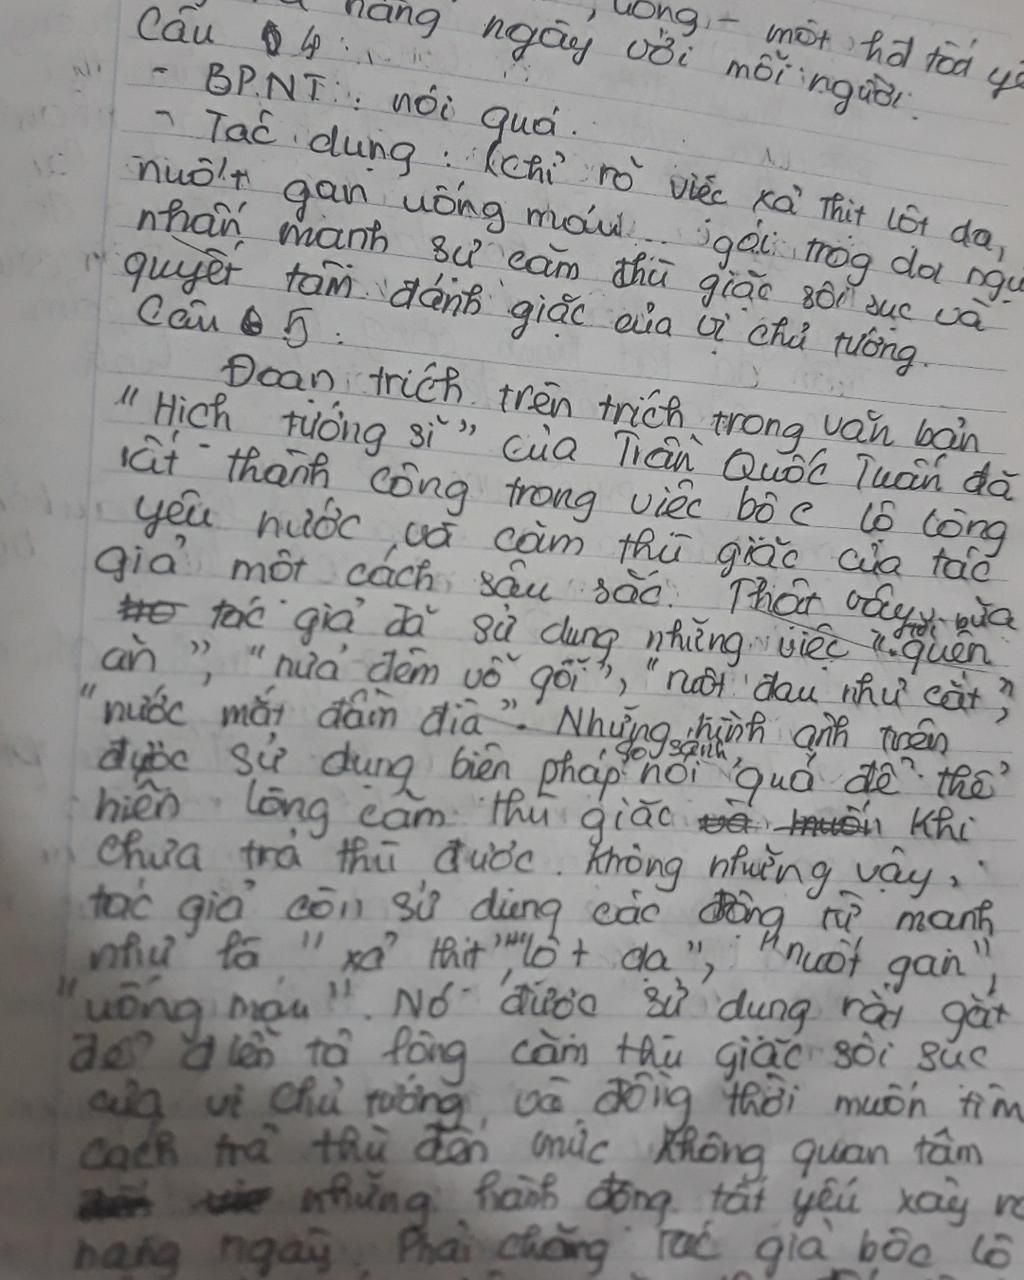 hàng ngày với mỗi người.
uống, - một hđ tất yế
Câu 4:
- BPNT: nói quá.
- Tác dụng: (chỉ rõ việc xả thịt lột da,
nuốt gan uống máu... gói trog da ngự
nhấn mạnh sự căm thù giặc sôi sục và
quyết tâm đánh giặc của vị chủ tướng.
Câu 5:
Đoạn trích trên trích trong văn bản
"Hịch tướng sĩ" của Trần Quốc Tuấn đã
rất thành công trong việc bộc lộ lòng
yêu nước và căm thù giặc của tác
giả một cách sâu sắc. Thật vậy,
tác giả đã sử dụng những việc "quên
ăn", "nửa đêm vỗ gối", "ruột đau như cắt",
"nước mắt đầm đìa". Những hình ảnh trên
so sánh,
được sử dụng biện pháp nói quá để thể
hiện lòng căm thù giặc khi
chưa trả thù được. Không những vậy,
tác giả còn sử dụng các động từ mạnh
như là "xả thịt", "lột da", "nuốt gan",
"uống máu". Nó được sử dụng rất gắt
để diễn tả lòng căm thù giặc sôi sục
của vị chủ tướng, và đồng thời muốn tìm
cách trả thù đến mức không quan tâm
những hành động tất yếu xảy ra
hàng ngày. Phải chăng tác giả bộc lộ